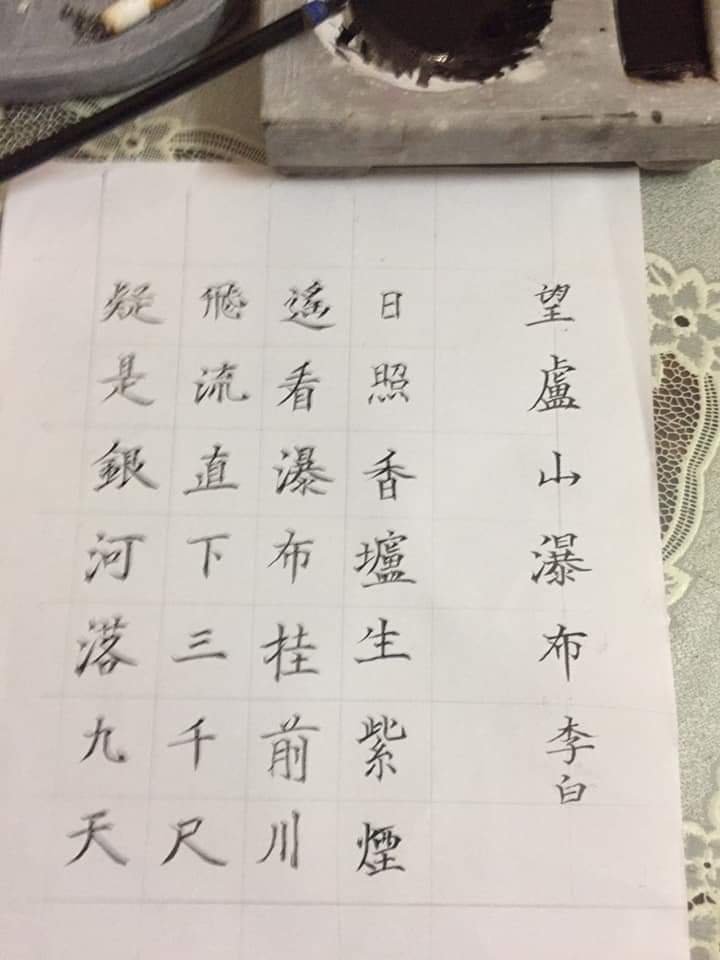 望盧山瀑布李白
日照香壚生紫煙
遙看瀑布挂前川
飛流直下三千尺
疑是銀河落九天